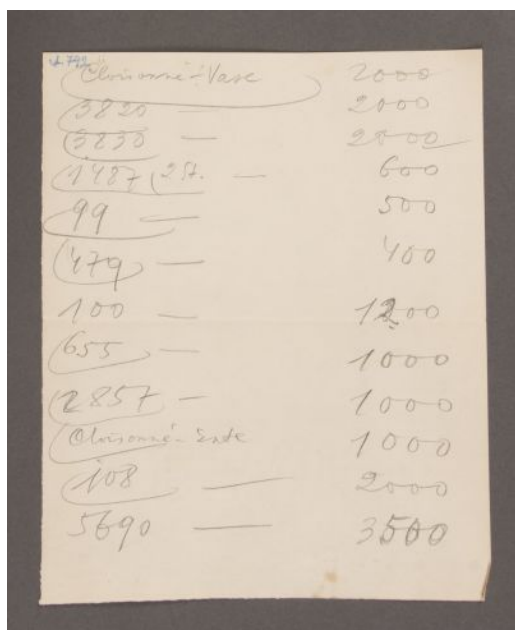 Cloisonné-Vase 2000
3820 — 2000
3830 — 2500
1487 (2 St. — 600
99 — 500
479 — 400
100 — 1200
655 — 1000
2857 — 1000
Cloisonné-Ente 1000
108 — 2000
5690 — 3500